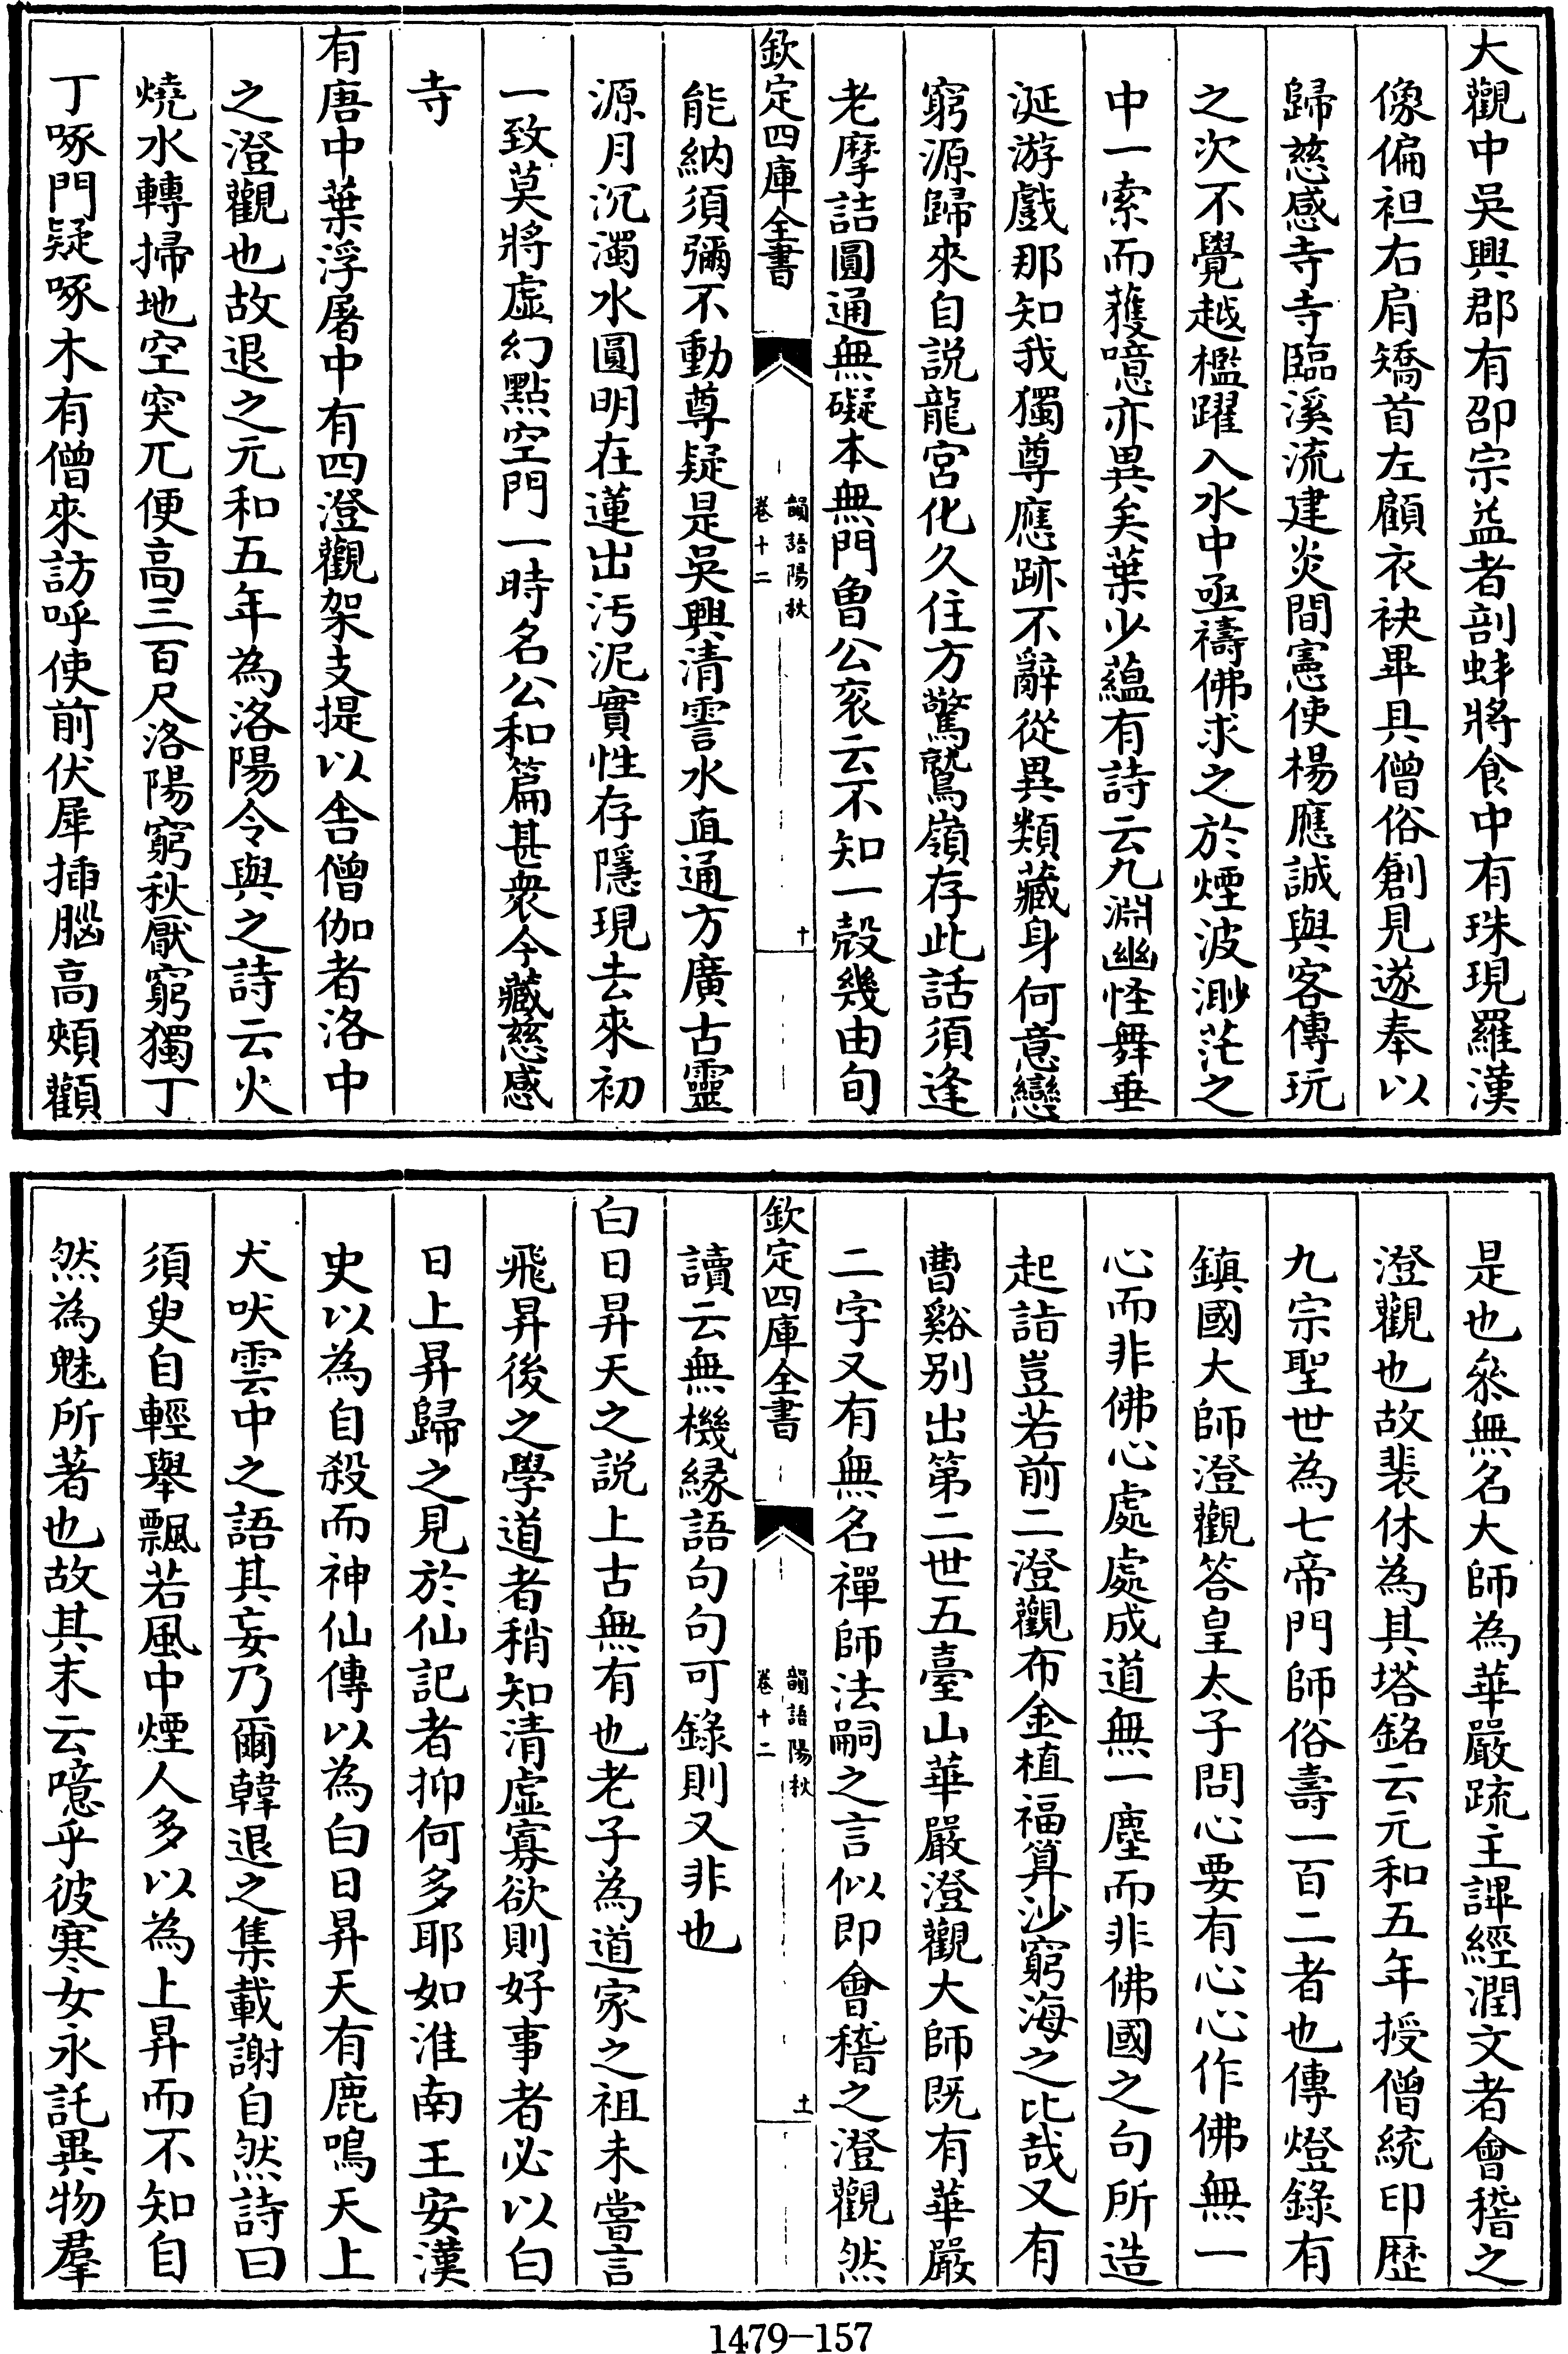 大觀中吳興郡有邵宗益者剖蚌將食中有珠現羅漢
像偏袒右肩矯首左顧衣袂畢具僧俗創見遂奉以
歸慈感寺寺臨溪流建炎間憲使楊應誠與客傳玩
之次不覺越檻躍入水中亟禱佛求之於煙波渺茫之
中一索而獲噫亦異矣葉少蘊有詩云九淵幽怪舞垂
涎游戲那知我獨尊應跡不辭從異類藏身何意戀
窮源歸來自説龍宮化久住方驚鷲嶺存此話須逢
老摩詰圓通無礙本無門曾公衮云不知一殻幾由旬
欽定四庫全書
韻語陽秋
卷十二
十
能納須彌不動尊疑是吳興清霅水直通方廣古靈
源月沉濁水圓明在蓮出汚泥實性存隱現去來初
一致莫將虛幻點空門一時名公和篇甚衆今藏慈感
寺
有唐中葉浮屠中有四澄觀架支提以舎僧伽者洛中
之澄觀也故退之元和五年為洛陽令與之詩云火
燒水轉掃地空突兀便高三百尺洛陽窮秋厭窮獨丁
丁啄門疑啄木有僧來訪呼使前伏犀揷腦高頰顴
是也叅無名大師為華嚴疏主譯經潤文者會稽之
澄觀也故裴休為其塔銘云元和五年授僧統印歴
九宗聖世為七帝門師俗壽一百二者也傳燈錄有
鎮國大師澄觀答皇太子問心要有心心作佛無一
心而非佛心處處成道無一塵而非佛國之句所造
起詣豈若前二澄觀布金植福算沙窮海之比哉又有
曹谿别出第二世五臺山華嚴澄觀大師既有華嚴
二字又有無名禪師法嗣之言似即會稽之澄觀然
欽定四庫全書
韻語陽秋
卷十二
十一
讀云無機緣語句句可錄則又非也
白日昇天之説上古無有也老子為道家之祖未嘗言
飛昇後之學道者稍知清虛寡欲則好事者必以白
日上昇歸之見於仙記者抑何多耶如淮南王安漢
史以為自殺而神仙傳以為白日昇天有鹿鳴天上
犬吠雲中之語其妄乃爾韓退之集載謝自然詩曰
須臾自輕舉飄若風中煙人多以為上昇而不知自
然為魅所著也故其末云噫乎彼寒女永託異物羣
1479-157